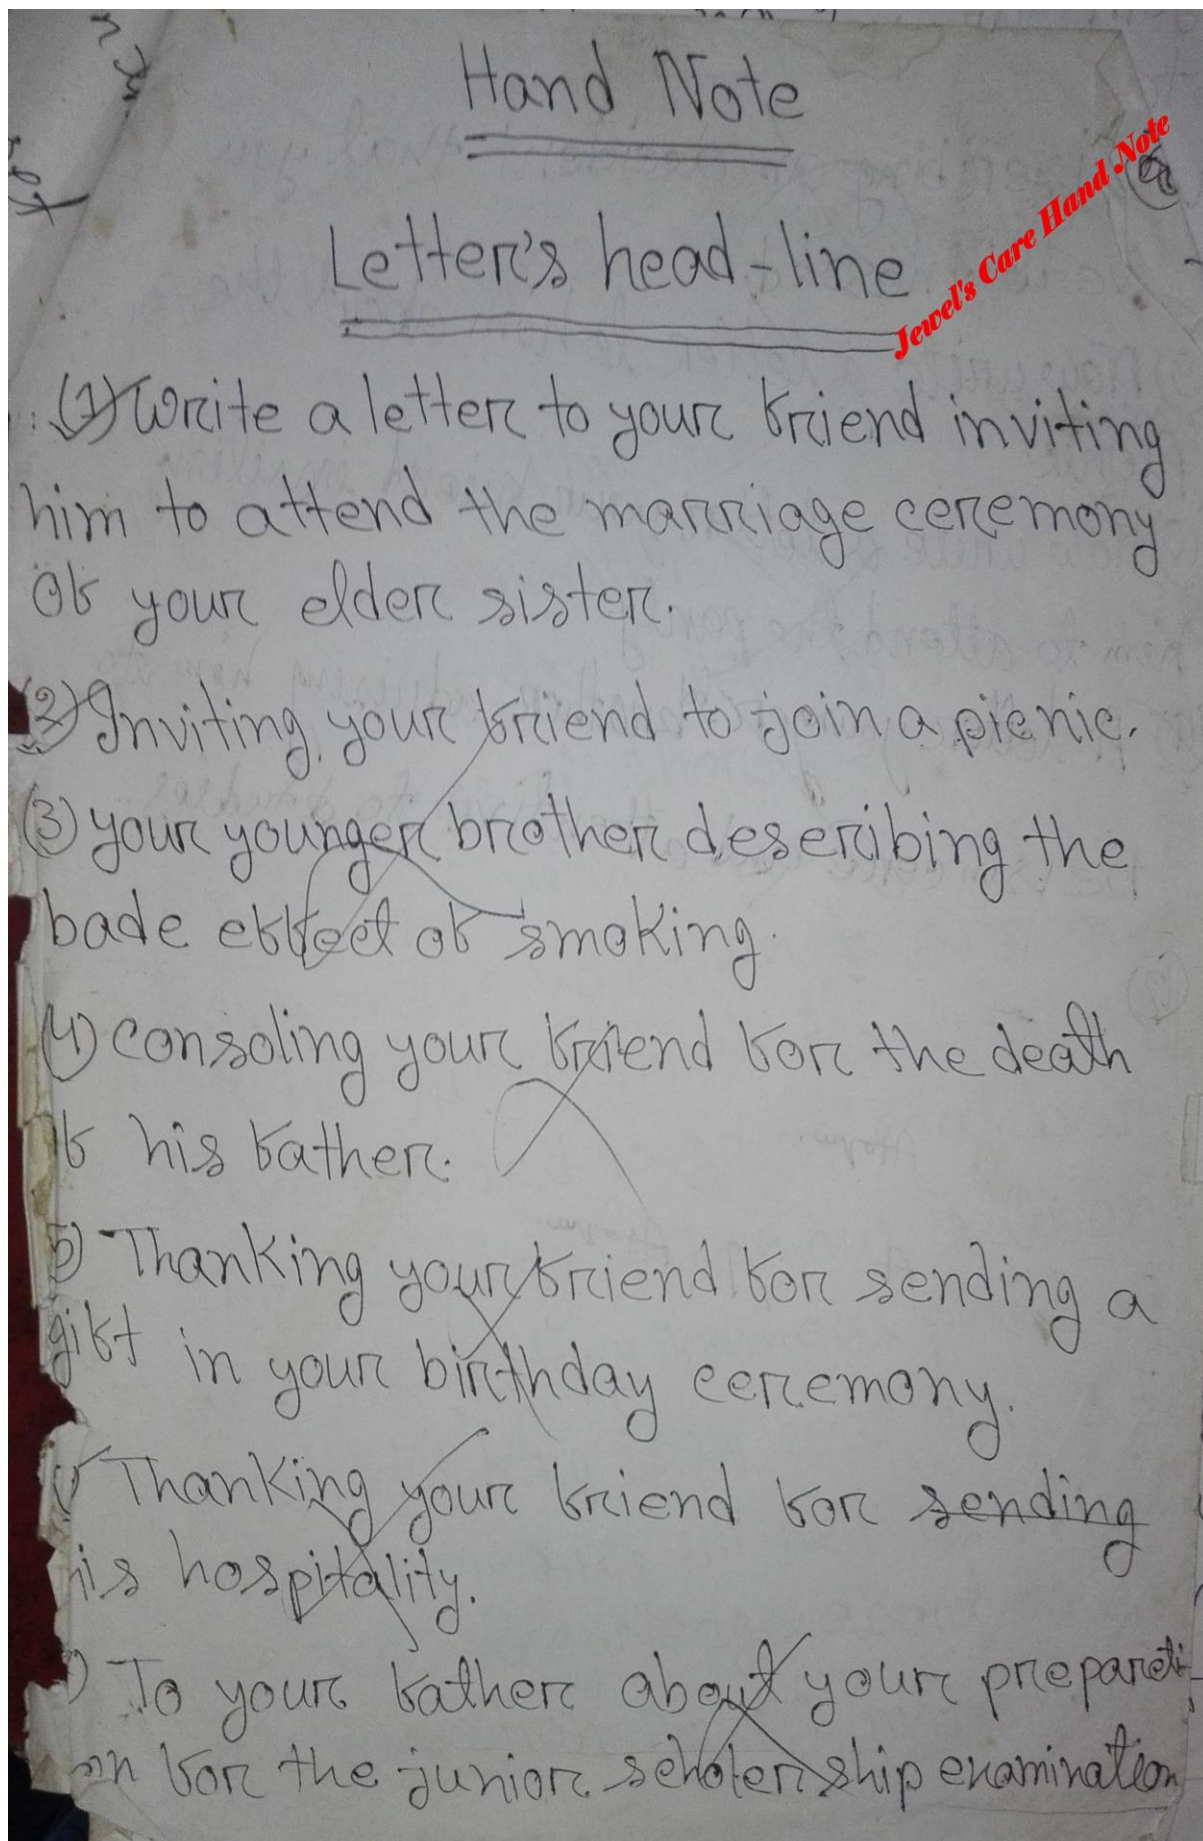 Hand Note
Jewel's Care Hand Note
Letter's head-line
(1) Write a letter to your friend inviting
him to attend the marriage ceremony
of your elder sister.
(2) Inviting your friend to join a picnic.
(3) your younger brother describing the
bade effect of smoking.
(4) consoling your friend for the death
f his father.
5) Thanking your friend for sending a
gift in your birthday ceremony.
) Thanking your friend for sending
his hospitality.
) To your father about your preparati-
on for the junior scholer ship examination